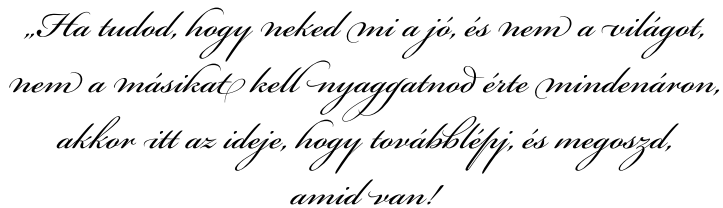 „Ha tudod, hogy neked mi a jó, és nem a világot,
nem a másikat kell nyaggatnod érte mindenáron,
akkor itt az ideje, hogy továbblépj, és megoszd,
amid van!